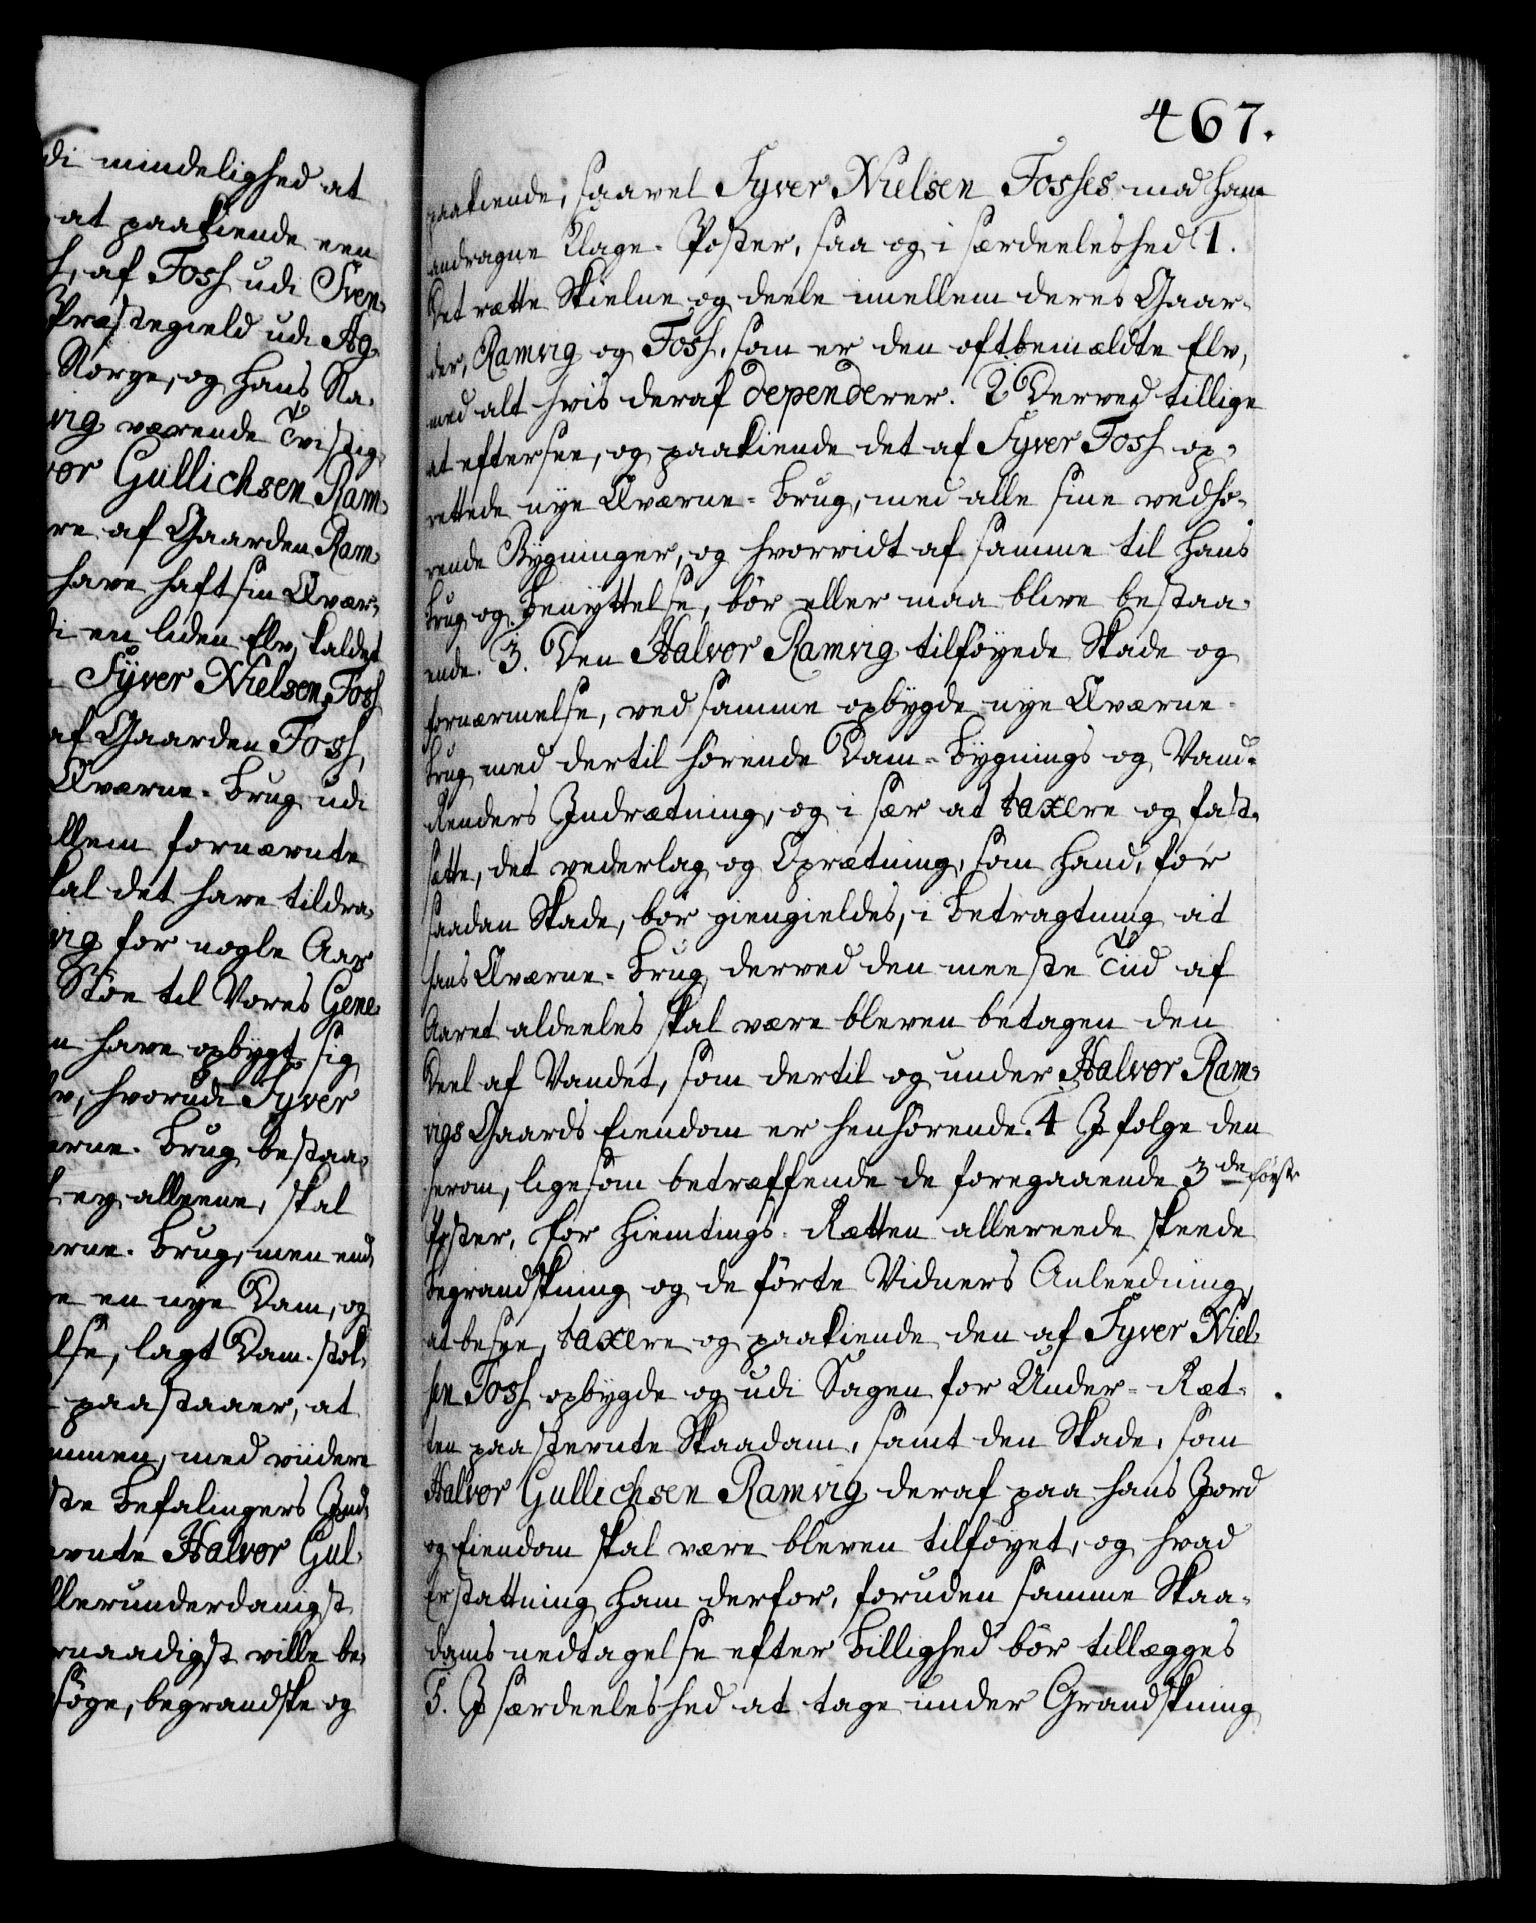 di mindelighed at
at paakiende een
h, af Foss udi Sven-
Præstegield udi Ag-
Norge, og Hans Ra-
vig værende Tvistig-
vor Gullichsen Ram-
re af Gaarden Ram-
have haft sin Qvær-
di en liden Elv, kaldet
Syver Nielsen Foss
af Gaarden Foss,
Qværne-Brug udi
ellem fornævnte
kal det have tildra-
vig for nogle Aar
Støe til Vores Gene-
n have opbygt sig
lv, hvorudi Syver
erne-Brug bestaa-
ey alleene, skal
erne-Brug, men end
e en nye Dam, og
lse, lagt Dam-stok-
paastaaer, at
mmen, med viidere
ste Befalingers Ind-
evnte Halvor Gul-
llerunderdanigst
rnaadigst ville be-
søge, begrandske og
467.
paakiende, saavel Syver Nielsen Fosses mod ham
andragne Klage-Poster, saa og i særdeeleshed 1.
Det rætte Skielne og deele imellem deres Gaar-
der, Ramvig og Foss, som er den oftbemældte Elv,
med alt hvis deraf dependerer. 2 Derved tillige
at eftersee, og paakiende det af Syver Foss op-
rettede nye Qværne-Brug, med alle sine vedhø-
rende Bygninger, og hvorvidt af samme til hans
Brug og Benyttelse, bør eller maa blive bestaa-
ende. 3. Den Halvor Ramvig tilføyede Skade og
fornærmelse, ved samme opbygde nye Qværne-
Brug med dertil hørende Dam-Bygnings og Vand-
Renders Indrætning, og i sær at taxere og fast-
sætte, det vederlag og Oprætning, som hand, for
saadan Skade, bør giengieldes, i Betragtning at
hans Qværne-Brug derved den meeste Tiid af
Aaret aldeeles skal være bleven betagen den
Deel af Vandet, som dertil og under Halvor Ram-
vigs Gaards Eiendom er henhørende. 4 I følge den
herom, ligesom betræffende de foregaaende 3de første
Poster, for Hiemtings-Rætten allereede skeede
Begrandskning og de førte Vidners Anleedning,
at besee, taxere og paakiende den af Syver Niel-
sen Foss opbygde og udi Sagen for Under-Ræt-
ten paastevnte Skaadam, samt den Skade, som
Halvor Gullichsen Ramvig deraf paa hans Jord
og Eiendom skal være bleven tilføyet, og hvad
Erstattning ham derfor, foruden samme Skaa-
dams nedtagelse efter Billighed bør tillægges
5. I særdeeleshed at tage under Grandskning